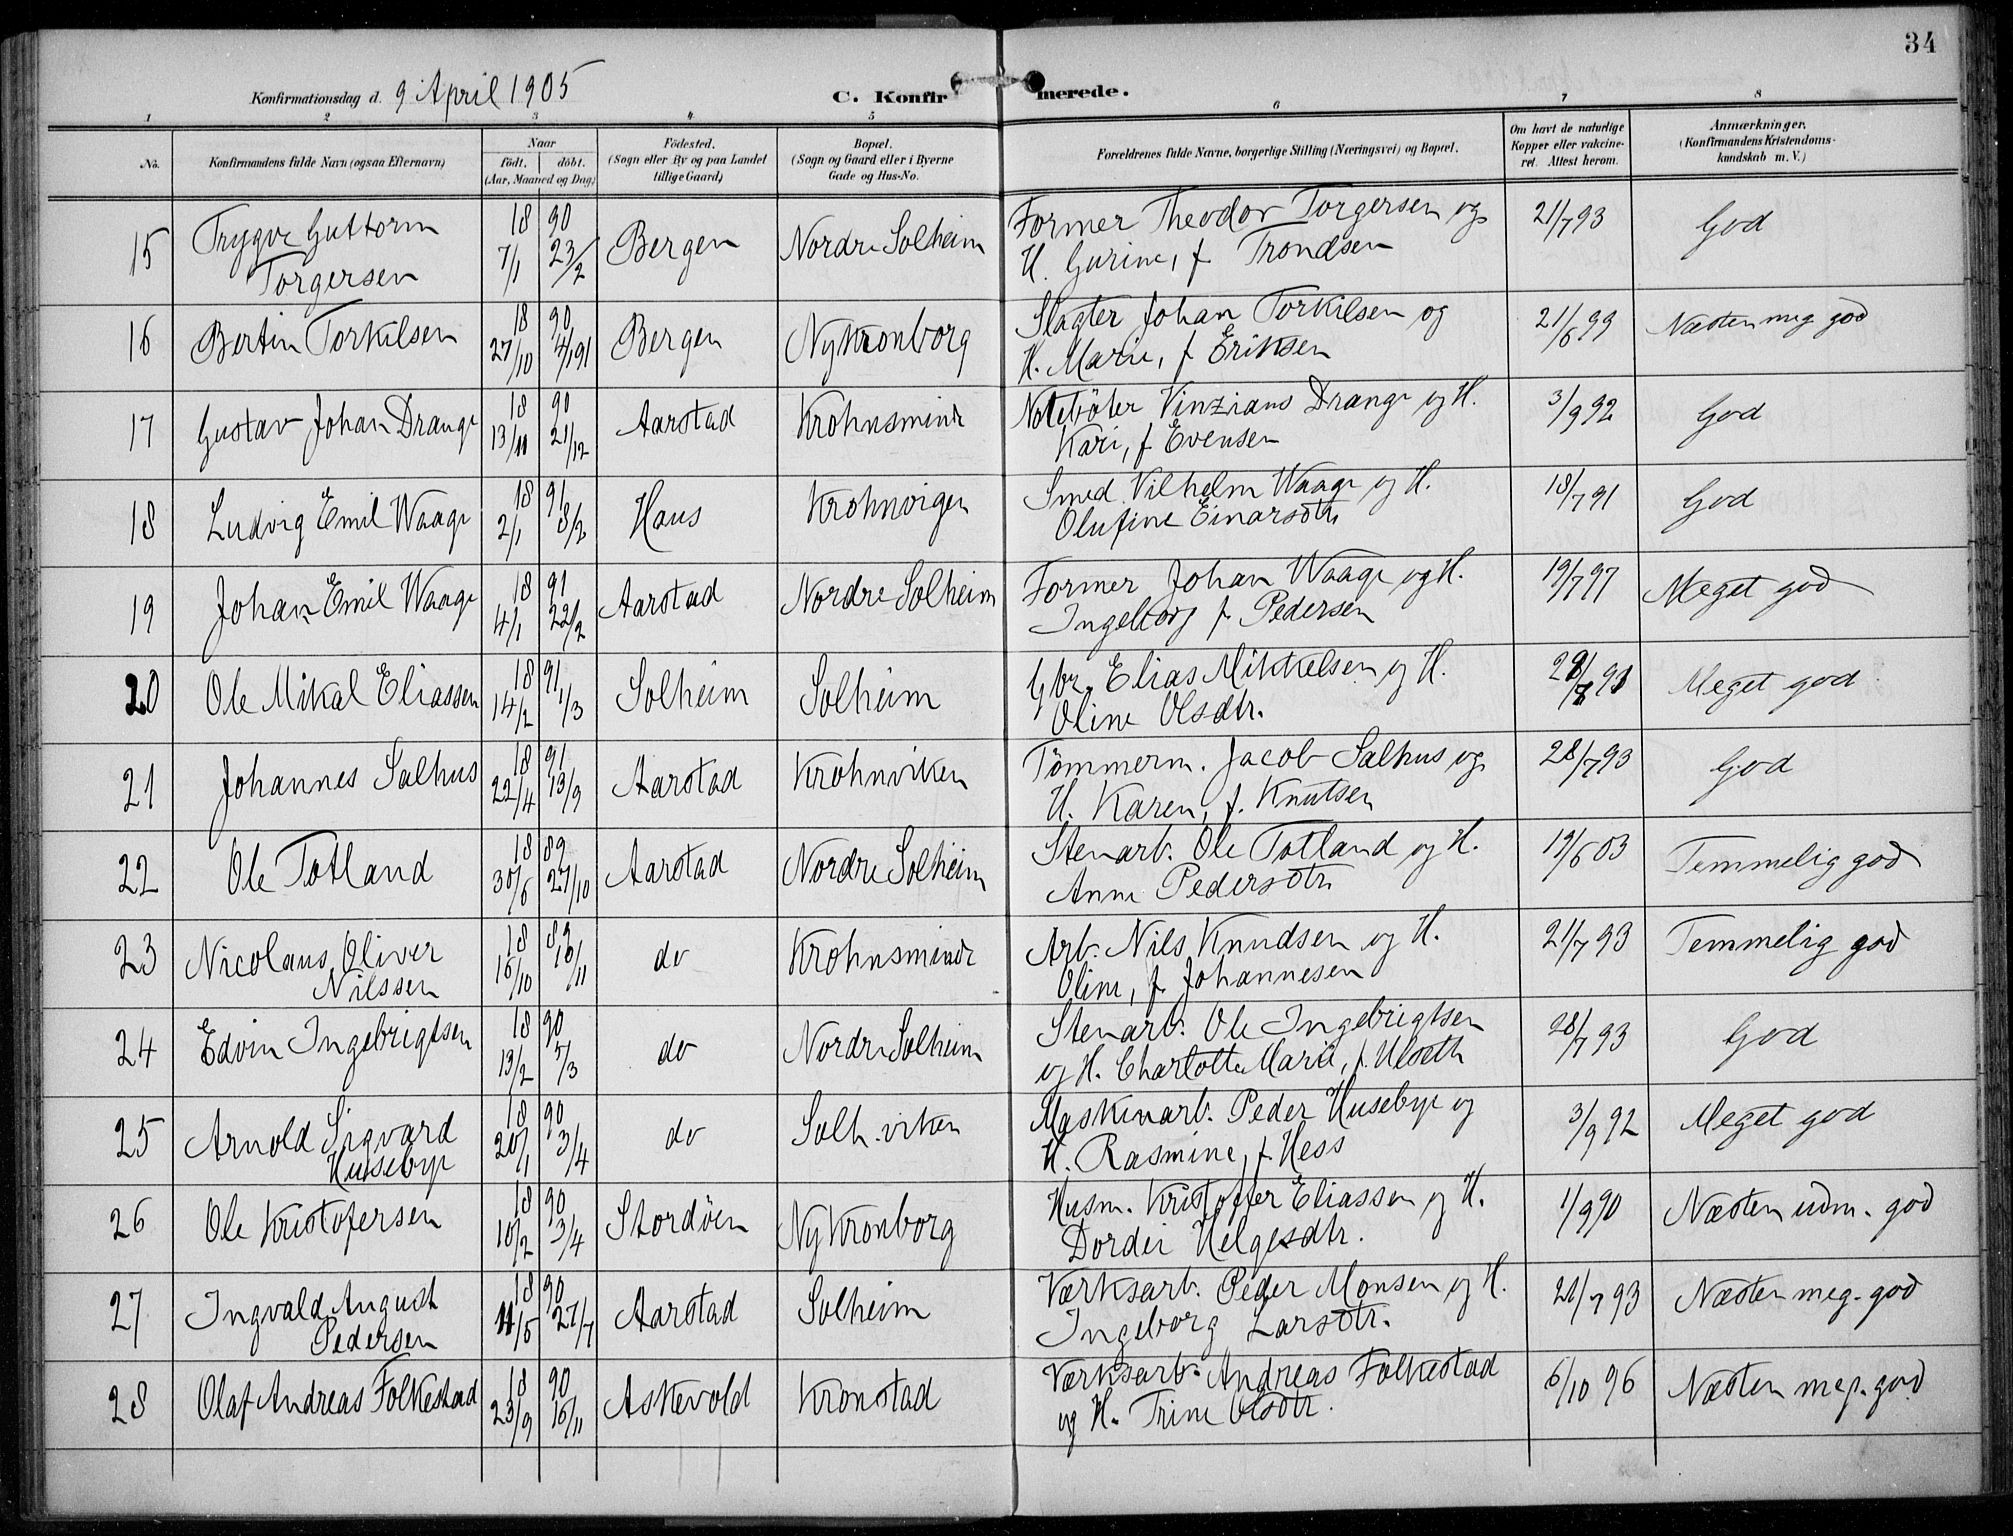 34
Konfirmationsdag d. 9 April 1905
C. Konfirmerede.
1 2 3 4 5 6 7 8
No.
Konfirmandens fulde Navn (ogsaa Efternavn)
Naar
født. døbt.
(Aar, Maaned og Dag)
Födested.
(Sogn eller By og paa Landet
tillige Gaard)
Bopæl.
(Sogn og Gaard eller i Byerne
Gade og Hus-No.
Forældrenes fulde Navne, borgerlige Stilling (Næringsvei) og Bopæl.
Om havt de naturlige
Kopper eller vakcine-
ret. Attest herom.
Anmærkninger.
(Konfirmandens Kristendoms-
kundskab m. V.)
15 Trygve Guttorm 18 90 Bergen Nordre Solheim Former Theodor Torgersen og 21/7 93 God
Torgersen 7/1 23/2 H. Gurine, f Trondsen
16 Bertin Torkilsen 18 90 Bergen Ny Kronborg Slagter Johan Torkilsen og 21/6 99 Næsten meg god
27/10 4/1 91 H. Marie, f Eriksen
17 Gustav Johan Drange 18 90 Aarstad Krohnsminde Notebøter Vinzians Drange og H. 3/9 92 God
13/11 21/12 Kari, f Evensen
18 Ludvig Emil Waage 18 91 Haus Krohnvigen Smed Vilhelm Waage og H. 18/7 91 God
2/1 8/2 Olufine Einarsdtr
19 Johan Emil Waage 18 91 Aarstad Nordre Solheim Former Johan Waage og H. 19/7 97 Meget god
4/1 22/2 Ingeborg f. Pedersen
20 Ole Mikal Eliassen 18 91 Solheim Solheim Gbr. Elias Mikkelsen og H. Meget god
14/2 1/3 Oline Olsdtr.
21 Johannes Salhus 18 91 Aarstad Krohnviken Tömmerm. Jacob Salhus og 28/7 93 God
22/4 13/9 H. Karen, f. Knutsen
22 Ole Totland 18 89 Aarstad Nordre Solheim Stenarb. Ole Totland og H. 19/6 03 Temmelig god
30/6 27/10 Anne Pedersdtr
23 Nicolaus Oliver 18 89 do Krohnsminde Arb. Nils Knudsen og H. 21/7 93 Temmelig god
Nilssen 16/10 16/11 Oline, f. Johannesen
24 Edvin Ingebrigtsen 18 90 do Nordre Solheim Stenarb. Ole Ingebrigtsen 28/7 93 God
13/2 5/3 og H. Charlotte Marie, f. Ulseth
25 Arnold Sigvard 18 90 do Solh. viken Maskinarb. Peder Husebye og 3/9 92 Meget god
Husebye 20/1 3/4 H. Rasmine, f. Hess
26 Ole Kristofersen 18 90 Stordöen Ny Kronborg Husm. Kristoffer Eliassen og H. 1/9 90 Næsten udm. god
10/2 3/4 Dordei Helgesdtr.
27 Ingvald August 18 90 Aarstad Solheim Værksarb. Peder Monsen og H. 21/7 93 Næsten meg. god
Pedersen 11/5 27/7 Ingeborg Larsdtr.
28 Olaf Andreas Folkestad 18 90 Askevold Kronstad Værksarb. Andreas Folkestad 6/10 96 Næsten meg. god
23/9 16/11 og H. Trine Olsdtr.